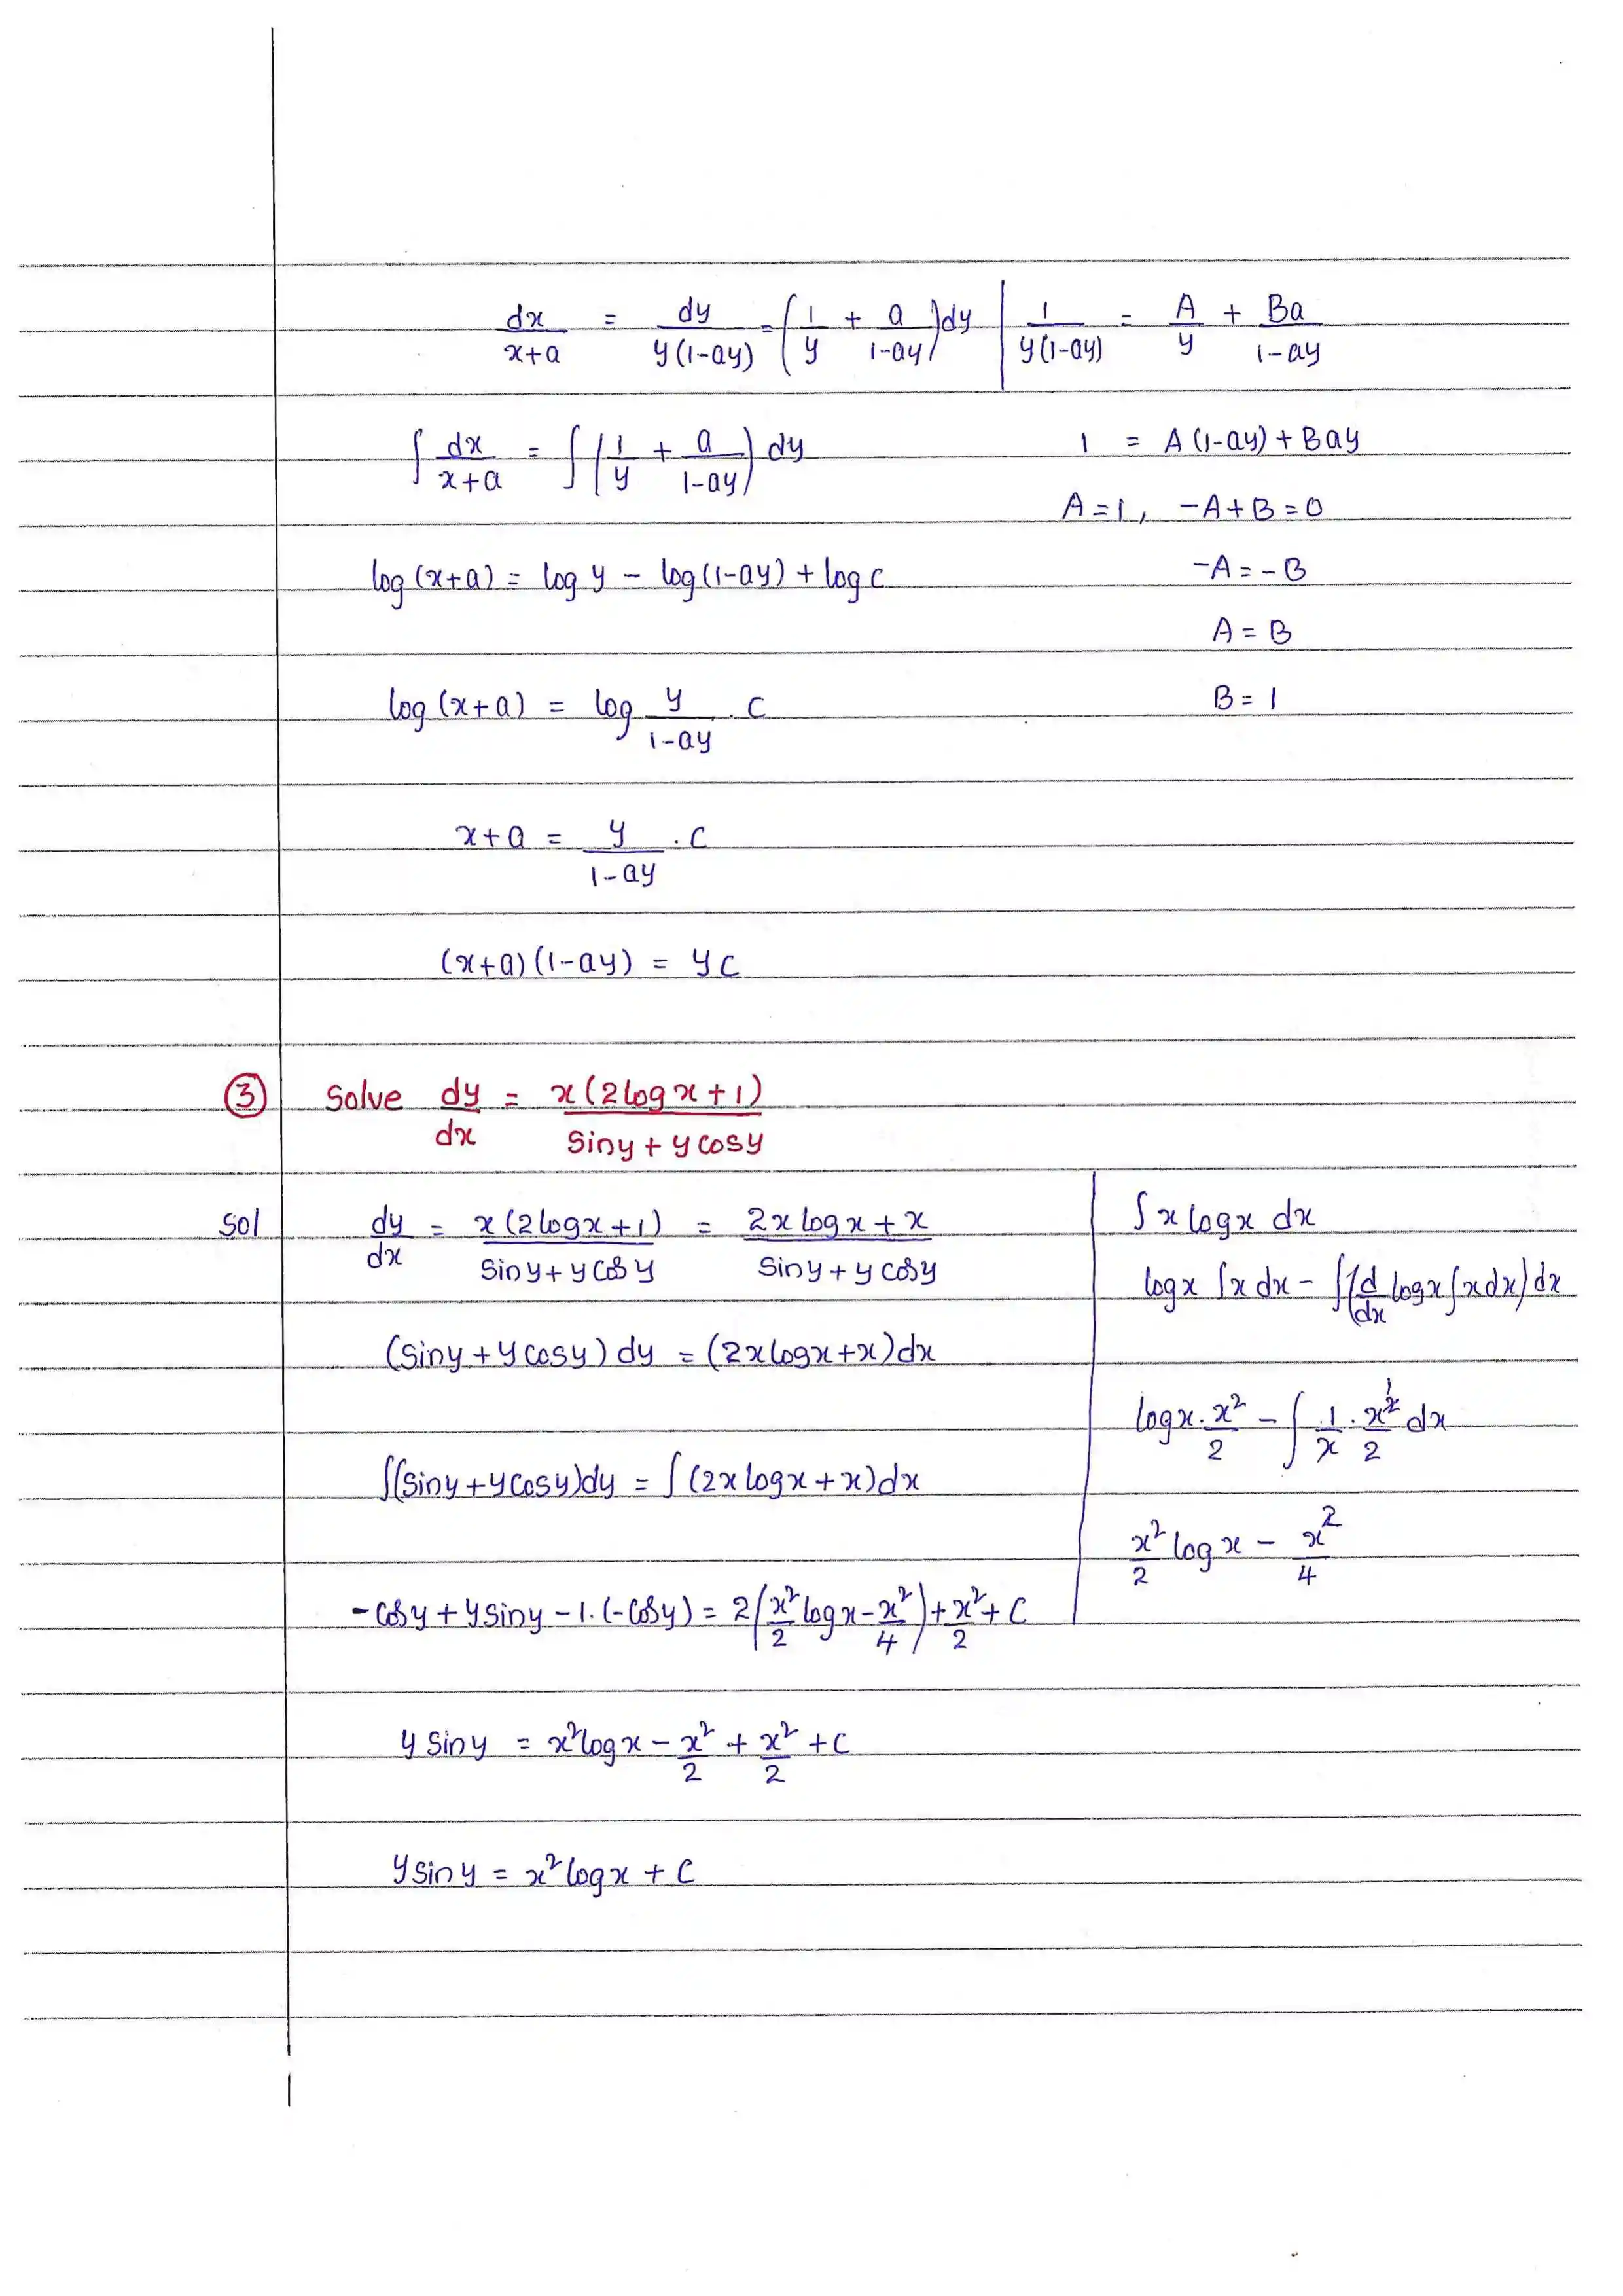 dx/(x+a) = dy/(y(1-ay)) = (1/y + a/(1-ay)) dy | 1/(y(1-ay)) = A/y + Ba/(1-ay)
∫ dx/(x+a) = ∫ (1/y + a/(1-ay)) dy
1 = A(1-ay) + Bay
A=1, -A+B=0
log(x+a) = log y - log(1-ay) + log c
-A = -B
A = B
log(x+a) = log y/(1-ay) . c
B = 1
x+a = y/(1-ay) . c
(x+a)(1-ay) = yc
③ Solve dy/dx = x(2logx+1)/(Siny+ycosy)
Sol dy/dx = x(2logx+1)/(Siny+ycosy) = (2xlogx+x)/(Siny+ycosy)
(Siny+ycosy)dy = (2xlogx+x)dx
∫(Siny+ycosy)dy = ∫(2xlogx+x)dx
-cosy+ysiny-1.(-cosy) = 2(x²/2 logx - x²/4) + x²/2 + C
ysiny = x²logx - x²/2 + x²/2 + C
ysiny = x²logx + C
∫xlogx dx
logx ∫x dx - ∫(d/dx logx ∫xdx)dx
logx . x²/2 - ∫ 1/x . x²/2 dx
x²/2 logx - x²/4